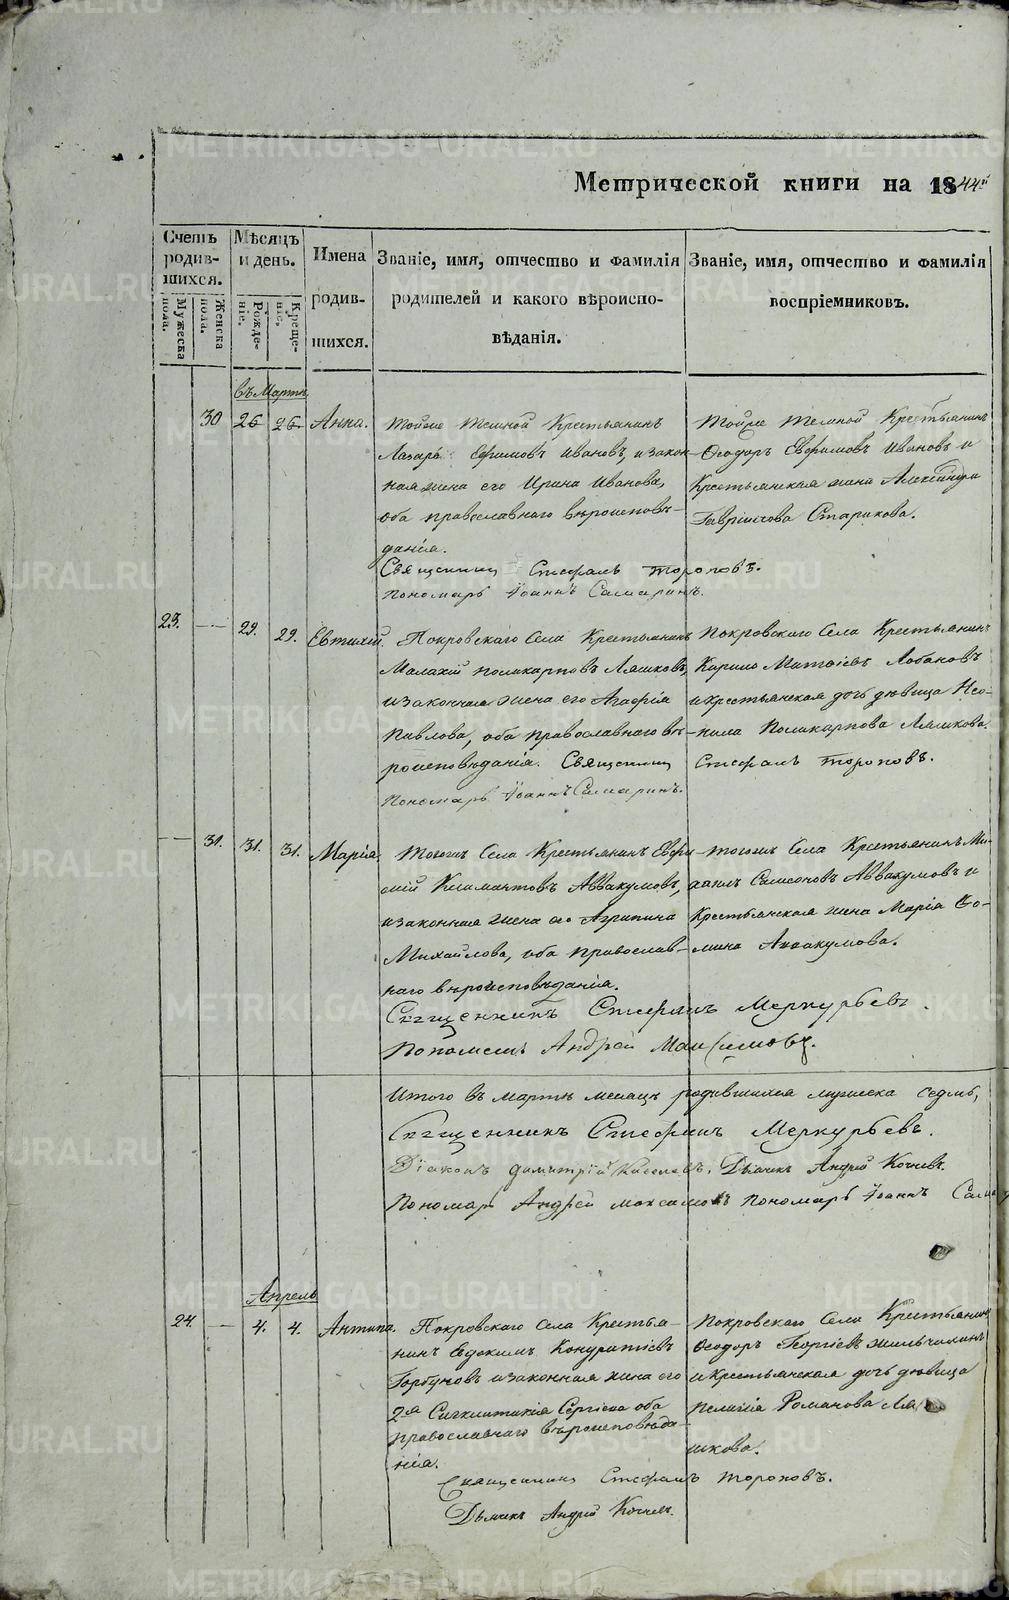 Метрической книги на 1844й
Счетъ родив- шихся.
Мужеска пола.
Женска пола.
Мѣсяцъ и день.
Рожде- ніе.
Креще- ніе.
Имена родив- шихся.
Званіе, имя, отчество и фамилія
родителей и какого вѣроиспо-
вѣданія.
Званіе, имя, отчество и фамилія
воспріемниковъ.
въ Мартѣ
30 26 26 Анна.
Крестьянинъ
Лазарь Ефимовъ Ивановъ, и закон-
ная жена его Ирина Иванова,
оба православнаго вѣроисповѣ-
данія.
Священникъ Стефанъ Тороповъ.
Пономарь Іоаннъ Самаринъ.
Крестьянинъ
Ѳеодоръ Евфимовъ Ивановъ и
Крестьянская жена Александра
Гавріилова Старикова.
23. — 29. 29. Евтихій.
Покровскаго Села Крестьянинъ
Малахій Поликарповъ Ляшковъ,
и законная жена его Агафія
Павлова, оба православнаго вѣ-
роисповѣданія. Священникъ Стефанъ Тороповъ.
Пономарь Іоаннъ Самаринъ.
Покровскаго Села Крестьянинъ
Кирило Матвіевъ Лобановъ
и крестьянская дочь дѣвица Нео-
нила Поликарпова Ляшкова.
— 31. 31. 31. Марія.
Тогожъ Села Крестьянинъ Евфи-
мій Климантовъ Аввакумовъ,
и законная жена его Агрипина
Михайлова, оба православ-
наго вѣроисповѣданія.
Священникъ Стефанъ Меркурьевъ.
Пономарь Андрей Максимовъ.
тогожъ Села Крестьянинъ Ми-
хаилъ Самсоновъ Аввакумовъ и
Крестьянская жена Марія Ѳо-
мина Аввакумова.
Итого въ Мартѣ месяцѣ родившихся мужеска седмь,
Священникъ Стефанъ Меркурьевъ.
Діаконъ Димитрій Киселевъ. Дьячекъ Андрей Кочневъ.
Пономарь Андрей Максимовъ Пономарь Іоаннъ
Апрель
24. — 4. 4. Антипа.
Покровскаго Села Крестья-
нинъ Евдокимъ Кондратіевъ
Горбуновъ и законная жена его
2я Сигклитикія Сергіева оба
православнаго вѣроисповѣда-
нія.
Священникъ Стефанъ Тороповъ.
Дьячекъ Андрей Кочневъ.
Покровскаго Села Крестьянинъ
Ѳеодоръ Георгіевъ
и крестьянская дочь дѣвица
Пелагія Романова Ля-
шкова.
METRIKI.GASO-URAL.RU